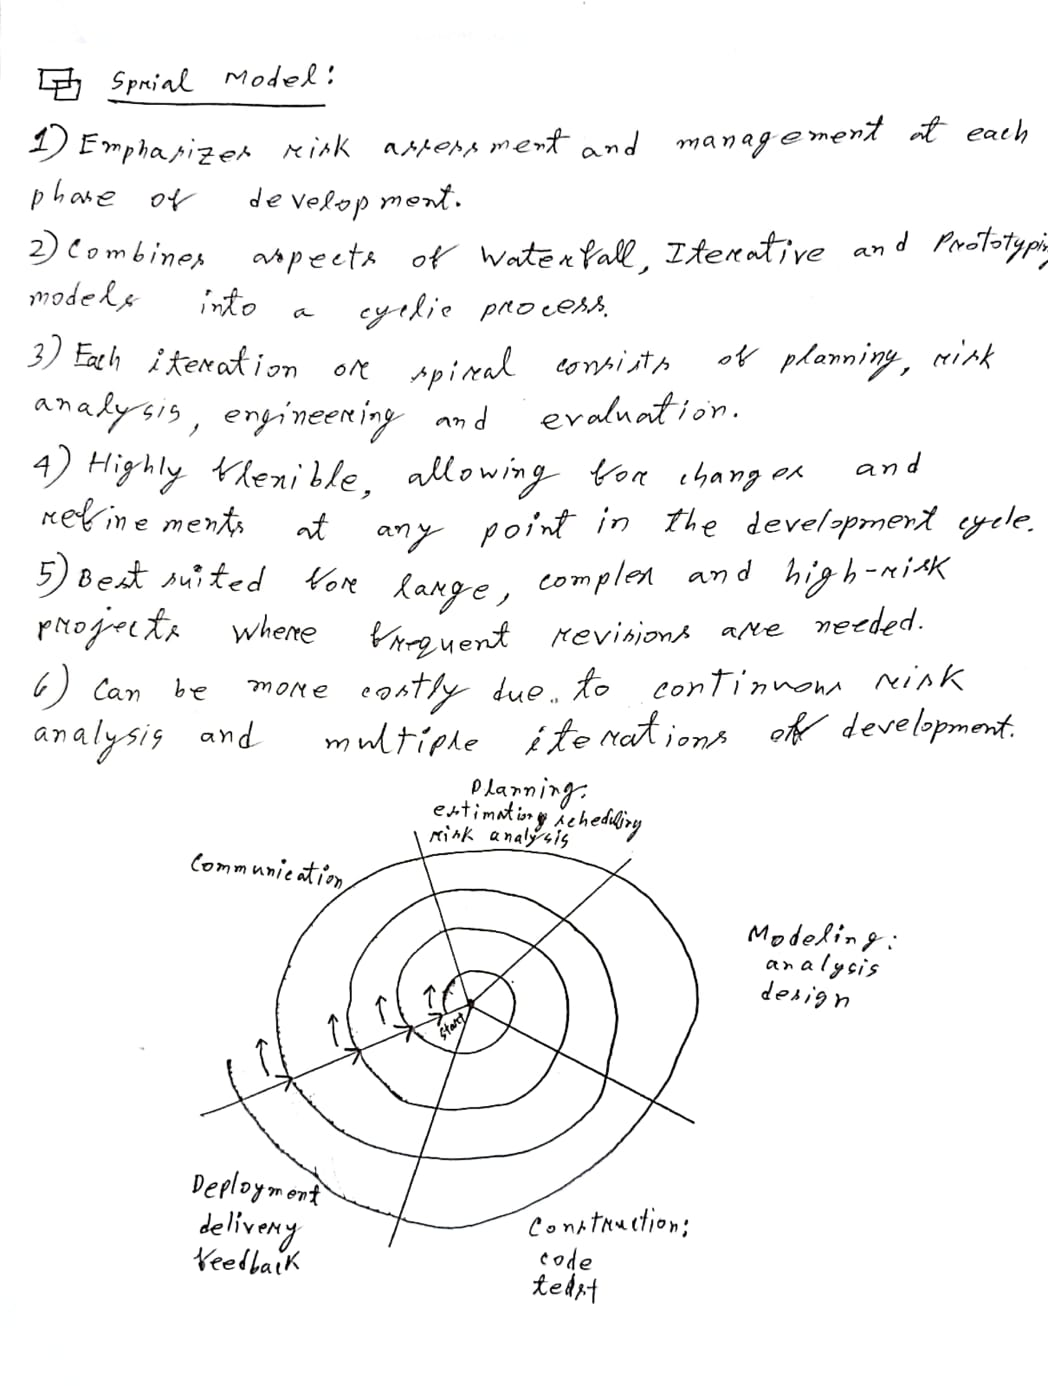 Sprial Model:
1) Emphasizes risk assessment and management at each
phase of development.
2) Combines aspects of Waterfall, Iterative and Prototyping
models into a cyclic process.
3) Each iteration or spiral consists of planning, risk
analysis, engineering and evaluation.
4) Highly flexible, allowing for changes and
refinements at any point in the development cycle.
5) Best suited for large, complex and high-risk
projects where frequent revisions are needed.
6) Can be more costly due to continuous risk
analysis and multiple iterations of development.
Planning:
estimation, scheduling
risk analysis
Communication
Modeling:
analysis
design
Start
Deployment
delivery
feedback
Construction:
code
tedst